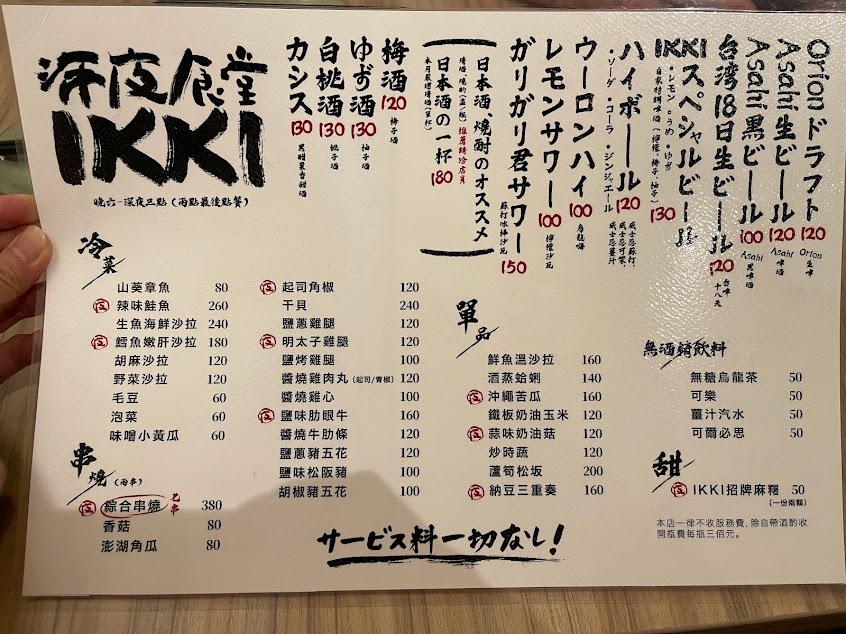 深夜食堂
IKKI
晚六-深夜三點(兩點最後點餐)
Orion ドラフト 120
Orion 生啤
Asahi 生ビール 120
Asahi 啤酒
Asahi 黒ビール 100
Asahi 黑啤酒
台湾18日生ビール 120
台啤十八天
IKKI スペシャルビール 130
・レモン・うめ・ゆず
自家特調啤酒(檸檬、梅子、柚子)
ハイボール 120
・ソーダ・コーラ・ジンジャエール
威士忌蘇打、威士忌可樂、威士忌薑汁
ウーロンハイ 100
烏龍嗨
レモンサワー 100
檸檬沙瓦
ガリガリ君サワー 150
蘇打冰棒沙瓦
日本酒、焼酎のオススメ
推薦請洽店員
日本酒の一杯 180
本月嚴選清酒(單杯)
梅酒 120
梅子酒
ゆず酒 130
柚子酒
白桃酒 130
桃子酒
カシス 130
黑醋栗香甜酒
冷菜
山葵章魚 80
辣味鮭魚 260
生魚海鮮沙拉 240
鱈魚嫩肝沙拉 180
胡麻沙拉 120
野菜沙拉 120
毛豆 60
泡菜 60
味噌小黃瓜 60
串燒(兩串)
綜合串燒 380
七串
香菇 80
澎湖角瓜 80
起司角椒 120
干貝 240
鹽蔥雞腿 120
明太子雞腿 120
鹽烤雞腿 100
醬燒雞肉丸(起司/青椒) 120
醬燒雞心 100
鹽味肋眼牛 160
醬燒牛肋條 120
鹽蔥豬五花 120
鹽味松阪豬 100
胡椒豬五花 100
單品
鮮魚溫沙拉 160
酒蒸蛤蜊 140
沖繩苦瓜 160
鐵板奶油玉米 120
蒜味奶油菇 120
炒時蔬 120
蘆筍松坂 200
納豆三重奏 160
無酒精飲料
無糖烏龍茶 50
可樂 50
薑汁汽水 50
可爾必思 50
甜
IKKI招牌麻糬 50
(一份兩顆)
本店一律不收服務費,除自帶酒酌收
開瓶費每瓶三佰元。
サービス料一切なし!